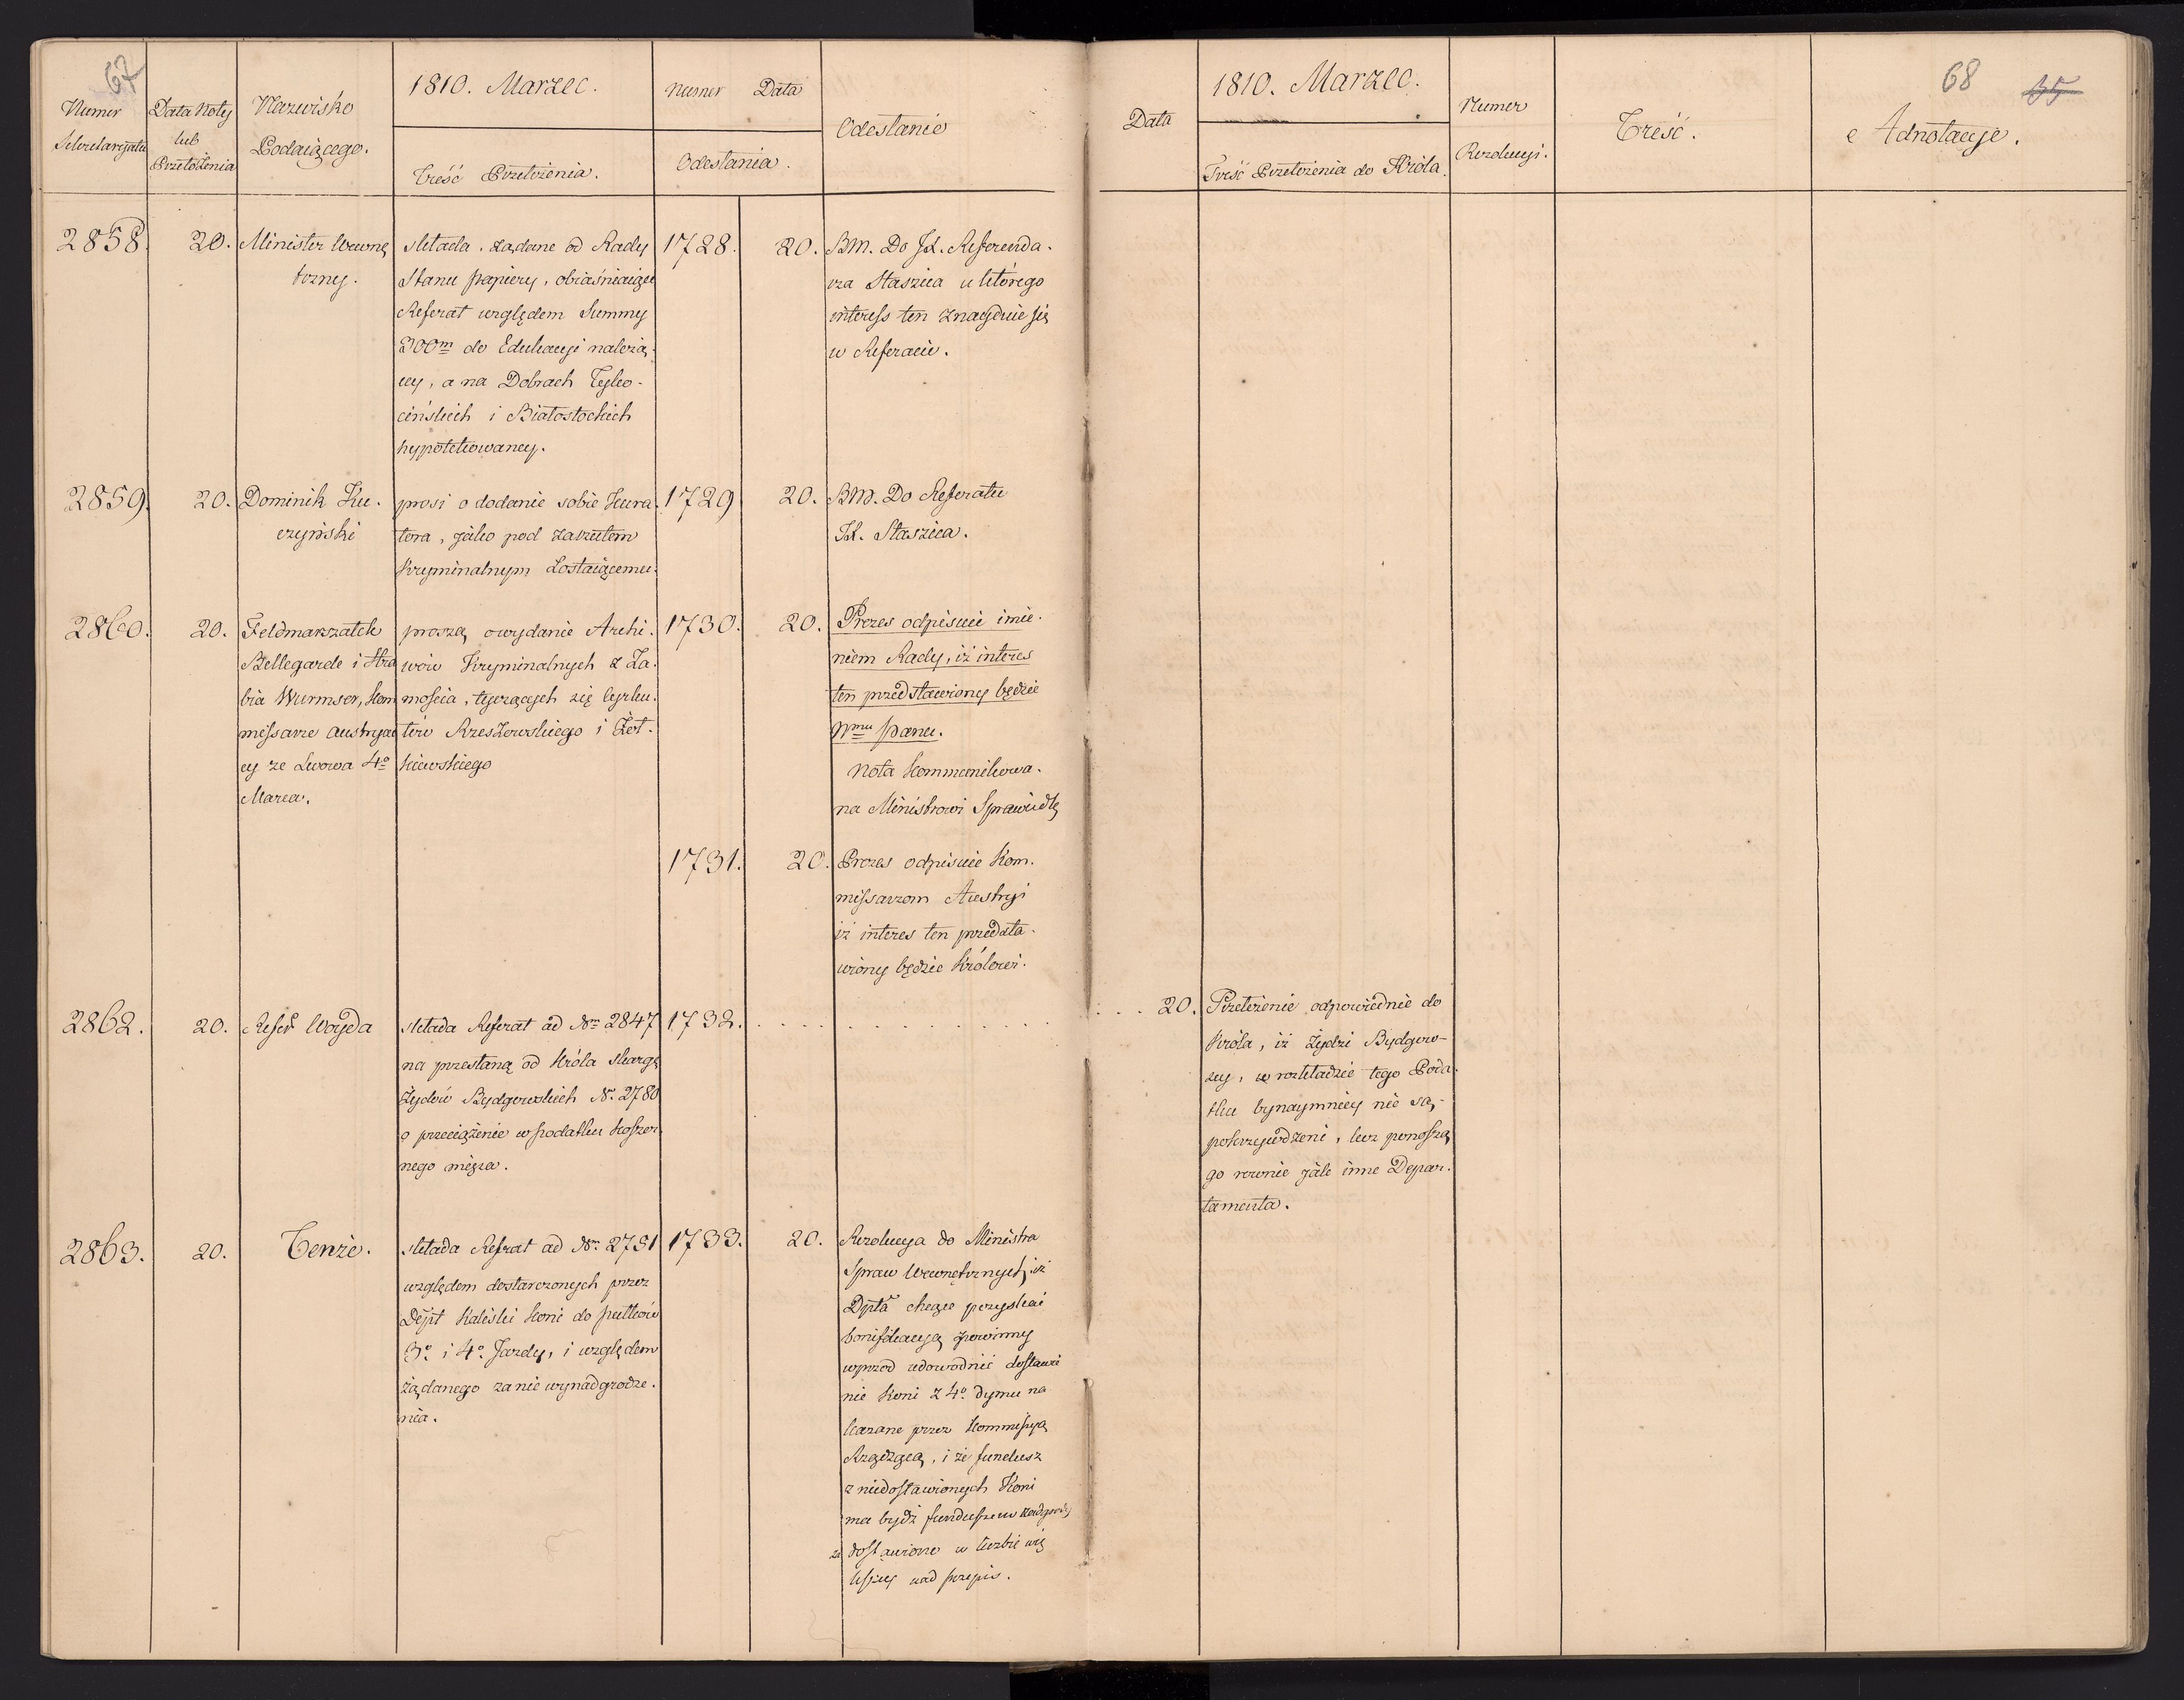 67
Numer
Sekretaryatu
Data Noty
lub
Przełożenia
Nazwisko
Podaiącego.
1810. Marzec.
Treść Przełożenia.
Numer Data
Odesłania.
Odesłanie
2858.
20.
Minister Wewnę
trzny.
składa żądane od Rady
Stanu papiery, obiaśniaiące
Referat względem Summy
300m do Edukacyi należą-
cey, a na Dobrach Tyko-
cińskich i Białostockich
hypotekowaney.
1728.
20.
BM. Do JX. Referenda-
rza Staszica u którego
interess ten znayduie się
w Referacie.
2859.
20.
Dominik Ku-
czyński
prosi o dodanie sobie Kura-
tora, jako pod zarzutem
Kryminalnym zostaiącemu.
1729
20.
BM. Do Referatu
JX. Staszica.
2860.
20.
Feldmarszałek
Bellegarde i Hra
bia Wurmser, Kom
missarze Austryac
cy ze Lwowa 4o
Marca.
proszą o wydanie Archi-
wów Kryminalnych z Za-
mościa, tyczących się Cyrku-
łów Rzeszowskiego i Żół-
kiewskiego
1730.
20.
Prezes odpisuie imie-
niem Rady, iż interes
ten przedstawiony będzie
Nmu Panu.
Nota kommunikowa-
na Ministrowi Sprawiedlę
1731.
20.
Prezes odpisuie Kom-
missarzom Austryi
iż interes ten przedsta-
wiony będzie Królowi.
2862.
20.
Refer Woyda
składa Referat ad Nm 2847
na przesłaną od Króla skargę
Żydów Bydgowskich No. 2780
o przeciążenie w podatku koszer-
nego mięsa.
1732.
2863.
20.
Tenże.
składa Referat ad Nm 2751
względem dostarczonych przez
Dept Kaliski koni do pułków
3o. i 4o. Jazdy, i względem
żądanego za nie wynadgrodze-
nia.
1733.
20.
Rezolucya do Ministra
Spraw Wewnętrznych, iż
Dpta chcące pozyskać
bonifikacyą powinny
wprzod udowodnić dostawie
nie koni z 4o. dymu na
kazane przez Kommissyą
Rządzącą, i że fundusz
z niedostawionych Koni
ma bydź funduszem nadgrody
za dostawione w liczbie wię
kszey nad przepis.
Data
1810. Marzec.
Treść Przełożenia do Króla.
Numer
Rezolucyi.
Treść.
68
35
Adnotacye.
20.
Przełożenie odpowiednie do
Króla, iż Żydzi Bydgow-
scy, w rozkładzie tego Poda-
tku bynaymniey nie są
pokrzywdzeni, lecz ponoszą
go rownie jak inne Depar-
tamenta.